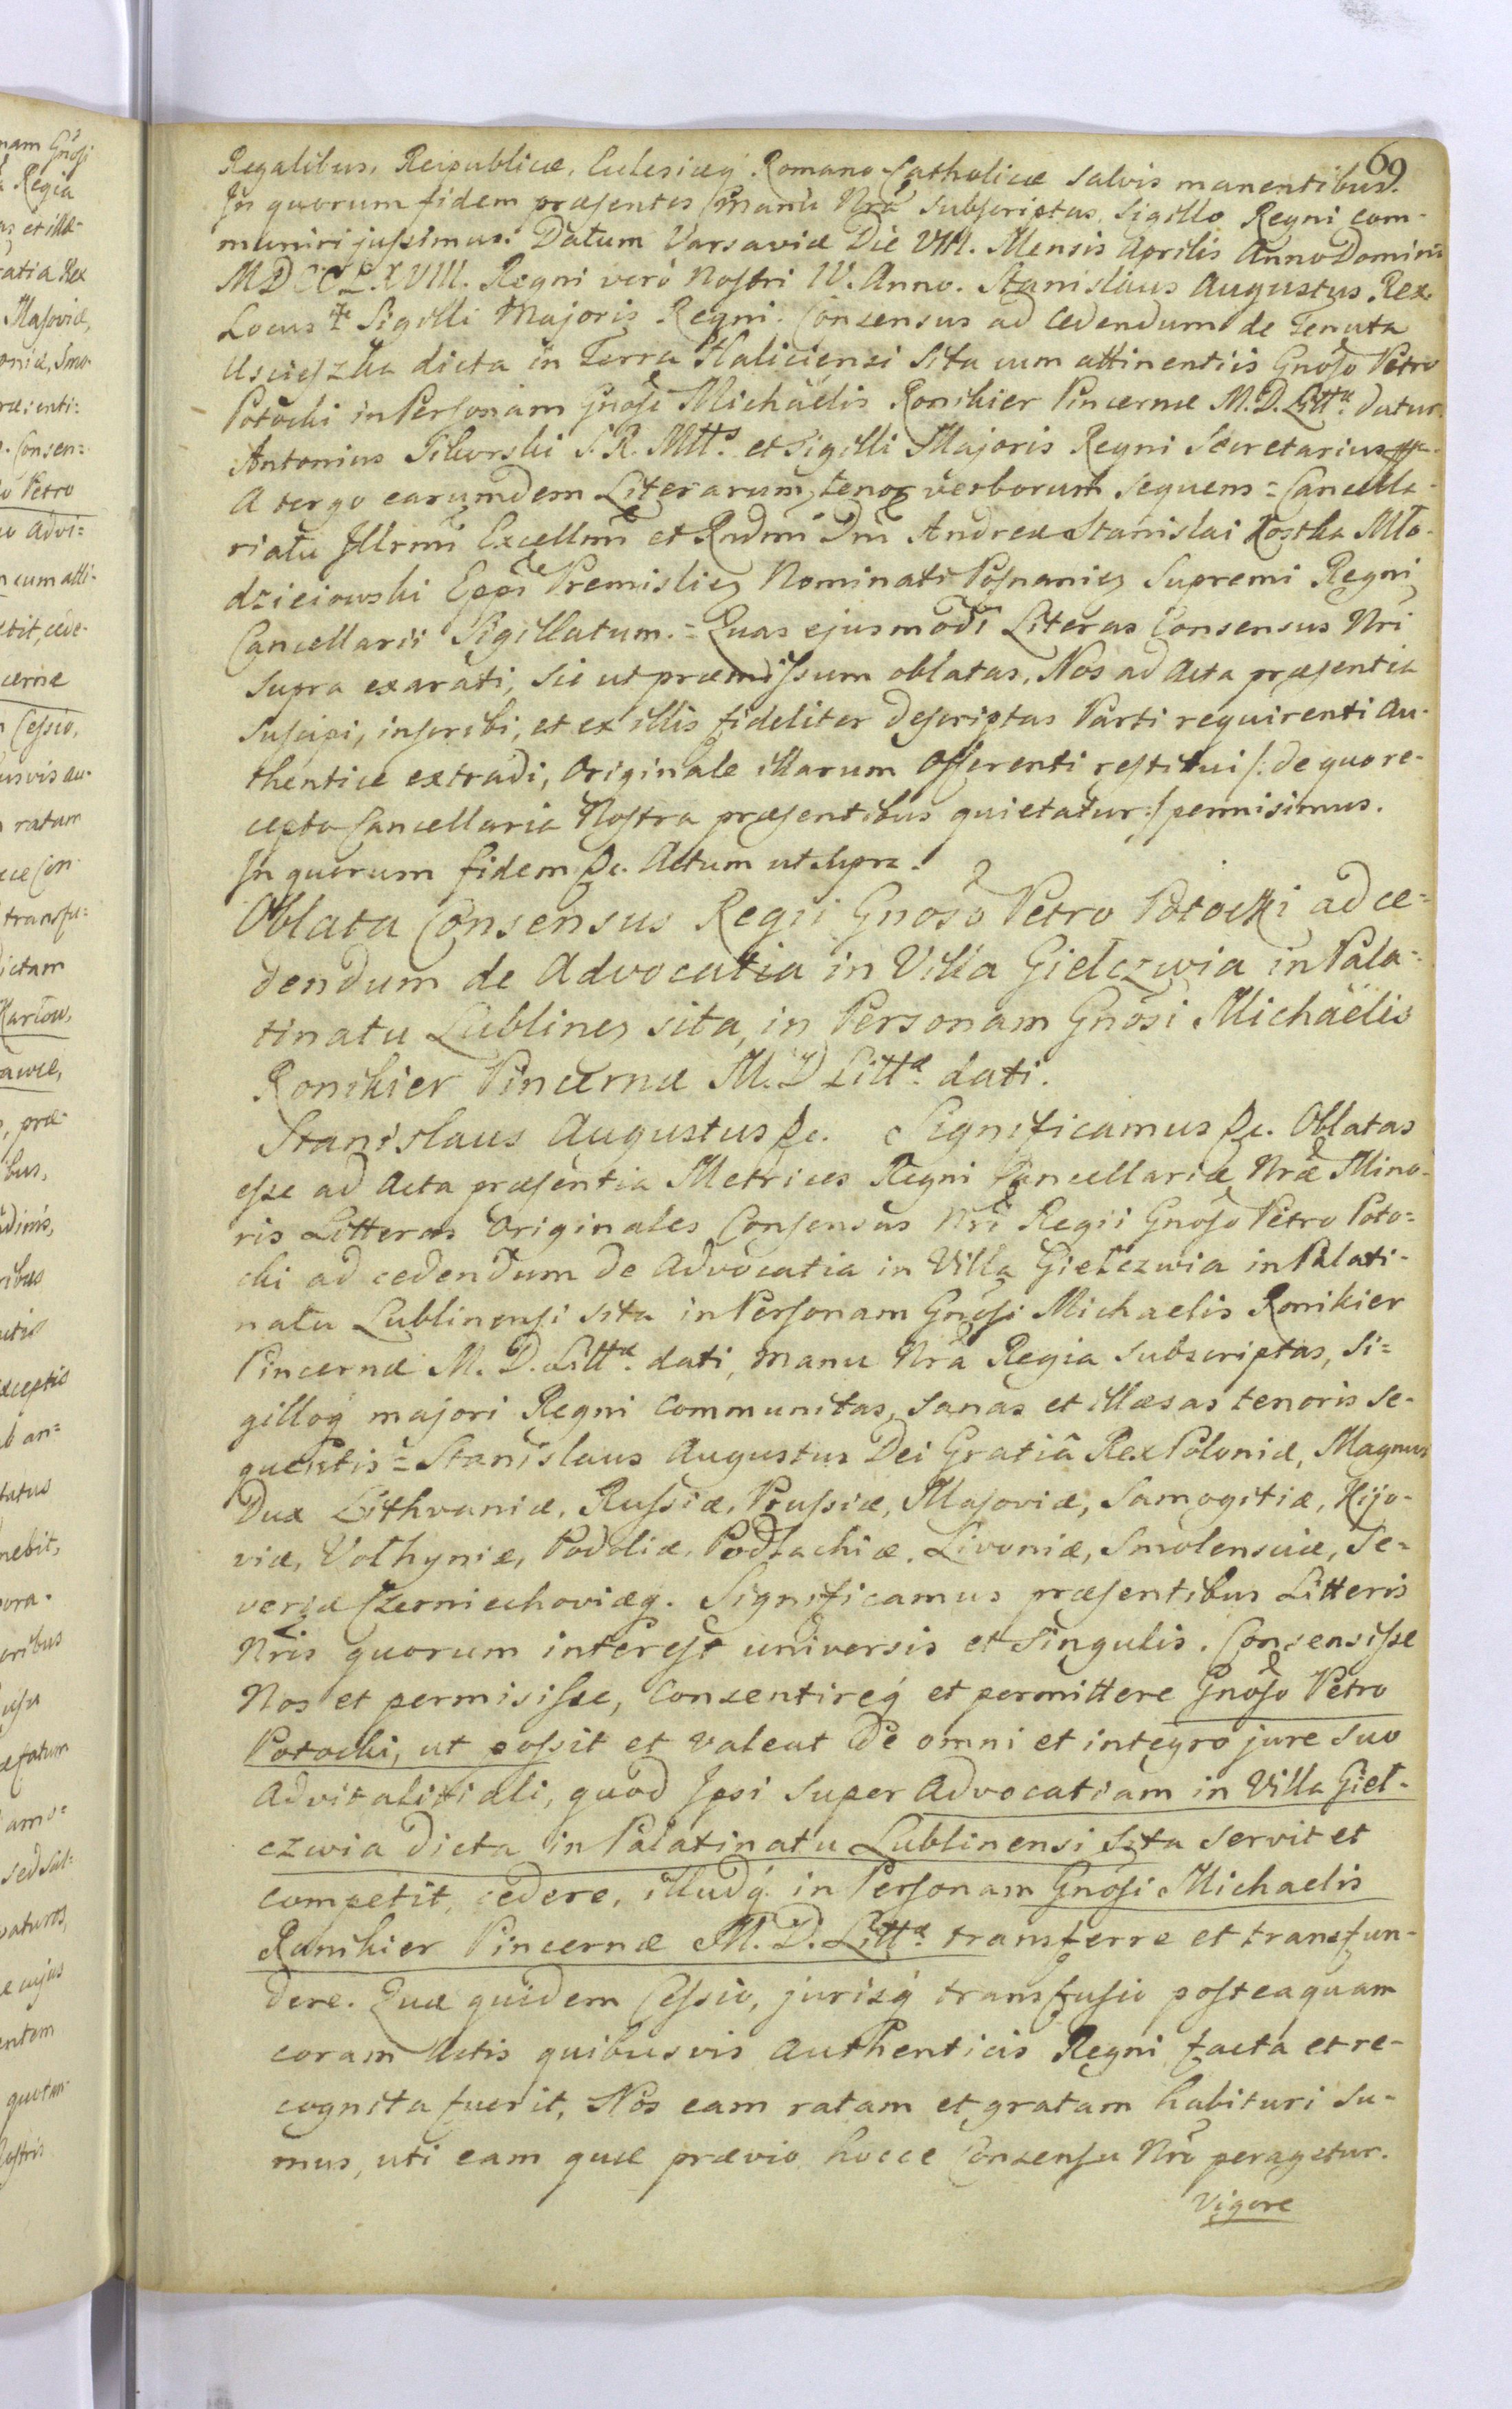 69
Regalibus, Reipublicæ, Eclesiæq́ Romano Catholicæ salvis manentibus.
In quorum fidem præsentes manu Nrã subscriptas, sigillo Regni com-
muniri jussimus. Datum Varsaviæ Die VIII. Mensis Aprilis Anno Domini
MDCCLXVIII. Regni verò Nostri IV. Anno. Stanislaus Augustus Rex
Locus ✠ Sigilli Majoris Regni. Consensus ad cedendum de Tenuta
Uscieszka dicta in Terra Haliciensi sita cum attinentiis Gnoso Petro
Potocki in Personam Gnosi Michäelis Ronikier Pincernæ M.D.Littæ datur.
Antonius Sikorski S.R.Mttis et Sigilli Majoris Regni Secretarius
A tergo earumdem Literarum, tenor verborum sequens = Cancella-
riatu Illrmi Excellmi et Rndmi Dni Andreæ Stanislai Kostka Mło-
dzieiowski Eppi Premislien Nominati Posnanien Supremi Regni
Cancellarii Sigillatum. = Quas ejusmodi Literas Consensus Nri
supra exarati, sic ut præmissum oblatas, Nos ad Acta præsentia
suscipi, inscribi, et ex illis fideliter descriptas Parti requirenti au-
thentice extradi, Originale illarum Offerenti restitui /: de quo re-
cepto Cancellaria Nostra præsentibus quietatur :/ permisimus.
In quorum fidem &c. Actum ut supra.
Oblata Consensus Regii Gnoso Petro Potocki ad ce=
dendum de Advocatia in Villa Giełczwia in Pala=
tinatu Lublinen sita, in Personam Gnosi Michäelis
Ronikier Pincernæ M.D Littæ dati.
Stanislaus Augustus &c. Significamus &c. Oblatas
esse ad Acta præsentia Metrices Regni Cancellariæ Nræ Mino-
ris Litteras Originales Consensus Nri Regii Gnoso Petro Poto=
cki ad cedendum de Advocatia in Villa Giełczwia in Palati-
natu Lublinensi sita in Personam Gnosi Michaelis Ronikier
Pincernæ M.D. Littæ dati, manu Nra Regia subscriptas, si=
gilloq́ majori Regni communitas, sanas et illæsas tenoris se-
quentis = Stanislaus Augustus Dei Gratiâ Rex Poloniæ, Magnus
Dux Lithvaniæ, Russiæ, Prussiæ, Masoviæ, Samogitiæ, Kijo-
viæ, Volhyniæ, Podoliæ, Podlachiæ, Livoniæ, Smolensciæ, Se=
veriæ Czerniechoviæq́. Significamus præsentibus Litteris
Nris quorum interest universis et singulis. Consensisse
Nos et permisisse, consentireq́ et permittere Gnoso Petro
Potocki, ut possit et valeat de omni et integro jure suo
advitalitiali, quod Ipsi super Advocatiam in Villa Gieł-
czwia dicta in Palatinatu Lublinensi sita servit et
competit, cedere, illudq́ in Personam Gnosi Michaelis
Ronikier Pincernæ M.D. Littæ transferre et transfun-
dere. Quæ quidem Cessio, jurisq́ transfusio posteaquam
coram Actis quibusvis Authenticis Regni facta et re-
cognita fuerit, Nos eam ratam et gratam habituri su-
mus, uti eam quæ prævio hocce Consensu Nro peragetur.
Vigore